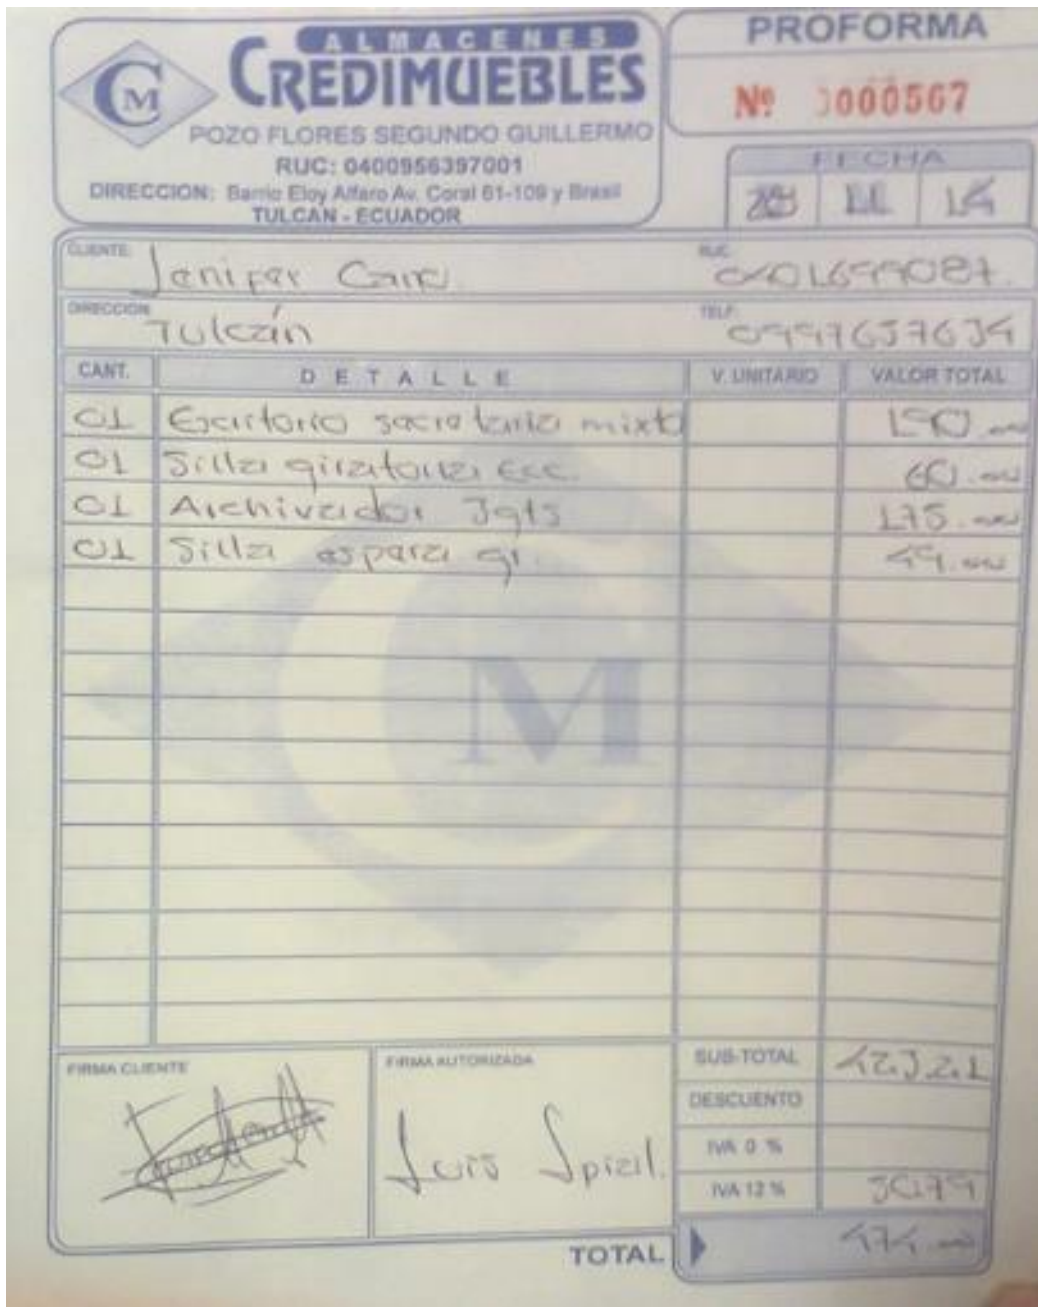 ALMACENES
CREDIMUEBLES
CM
POZO FLORES SEGUNDO GUILLERMO
RUC: 0400956397001
DIRECCION: Barrio Eloy Alfaro Av. Coral 61-109 y Brasil
TULCAN - ECUADOR
PROFORMA
Nº 0000567
FECHA
11 14
CLIENTE: Jenifer
RUC: 0401699087.
DIRECCION: Tulcán
TELF: 0997637634
CANT. DETALLE V. UNITARIO VALOR TOTAL
01 Escritorio secretaria mixto 190.00
01 Silla giratoria Ecc. 60.00
01 Archivador 3gts 175.00
01 Silla espera gr. 49.00
M
FIRMA CLIENTE
FIRMA AUTORIZADA
Luis
SUB-TOTAL 423.21
DESCUENTO
IVA 0 %
IVA 12 % 50.79
TOTAL 474.00